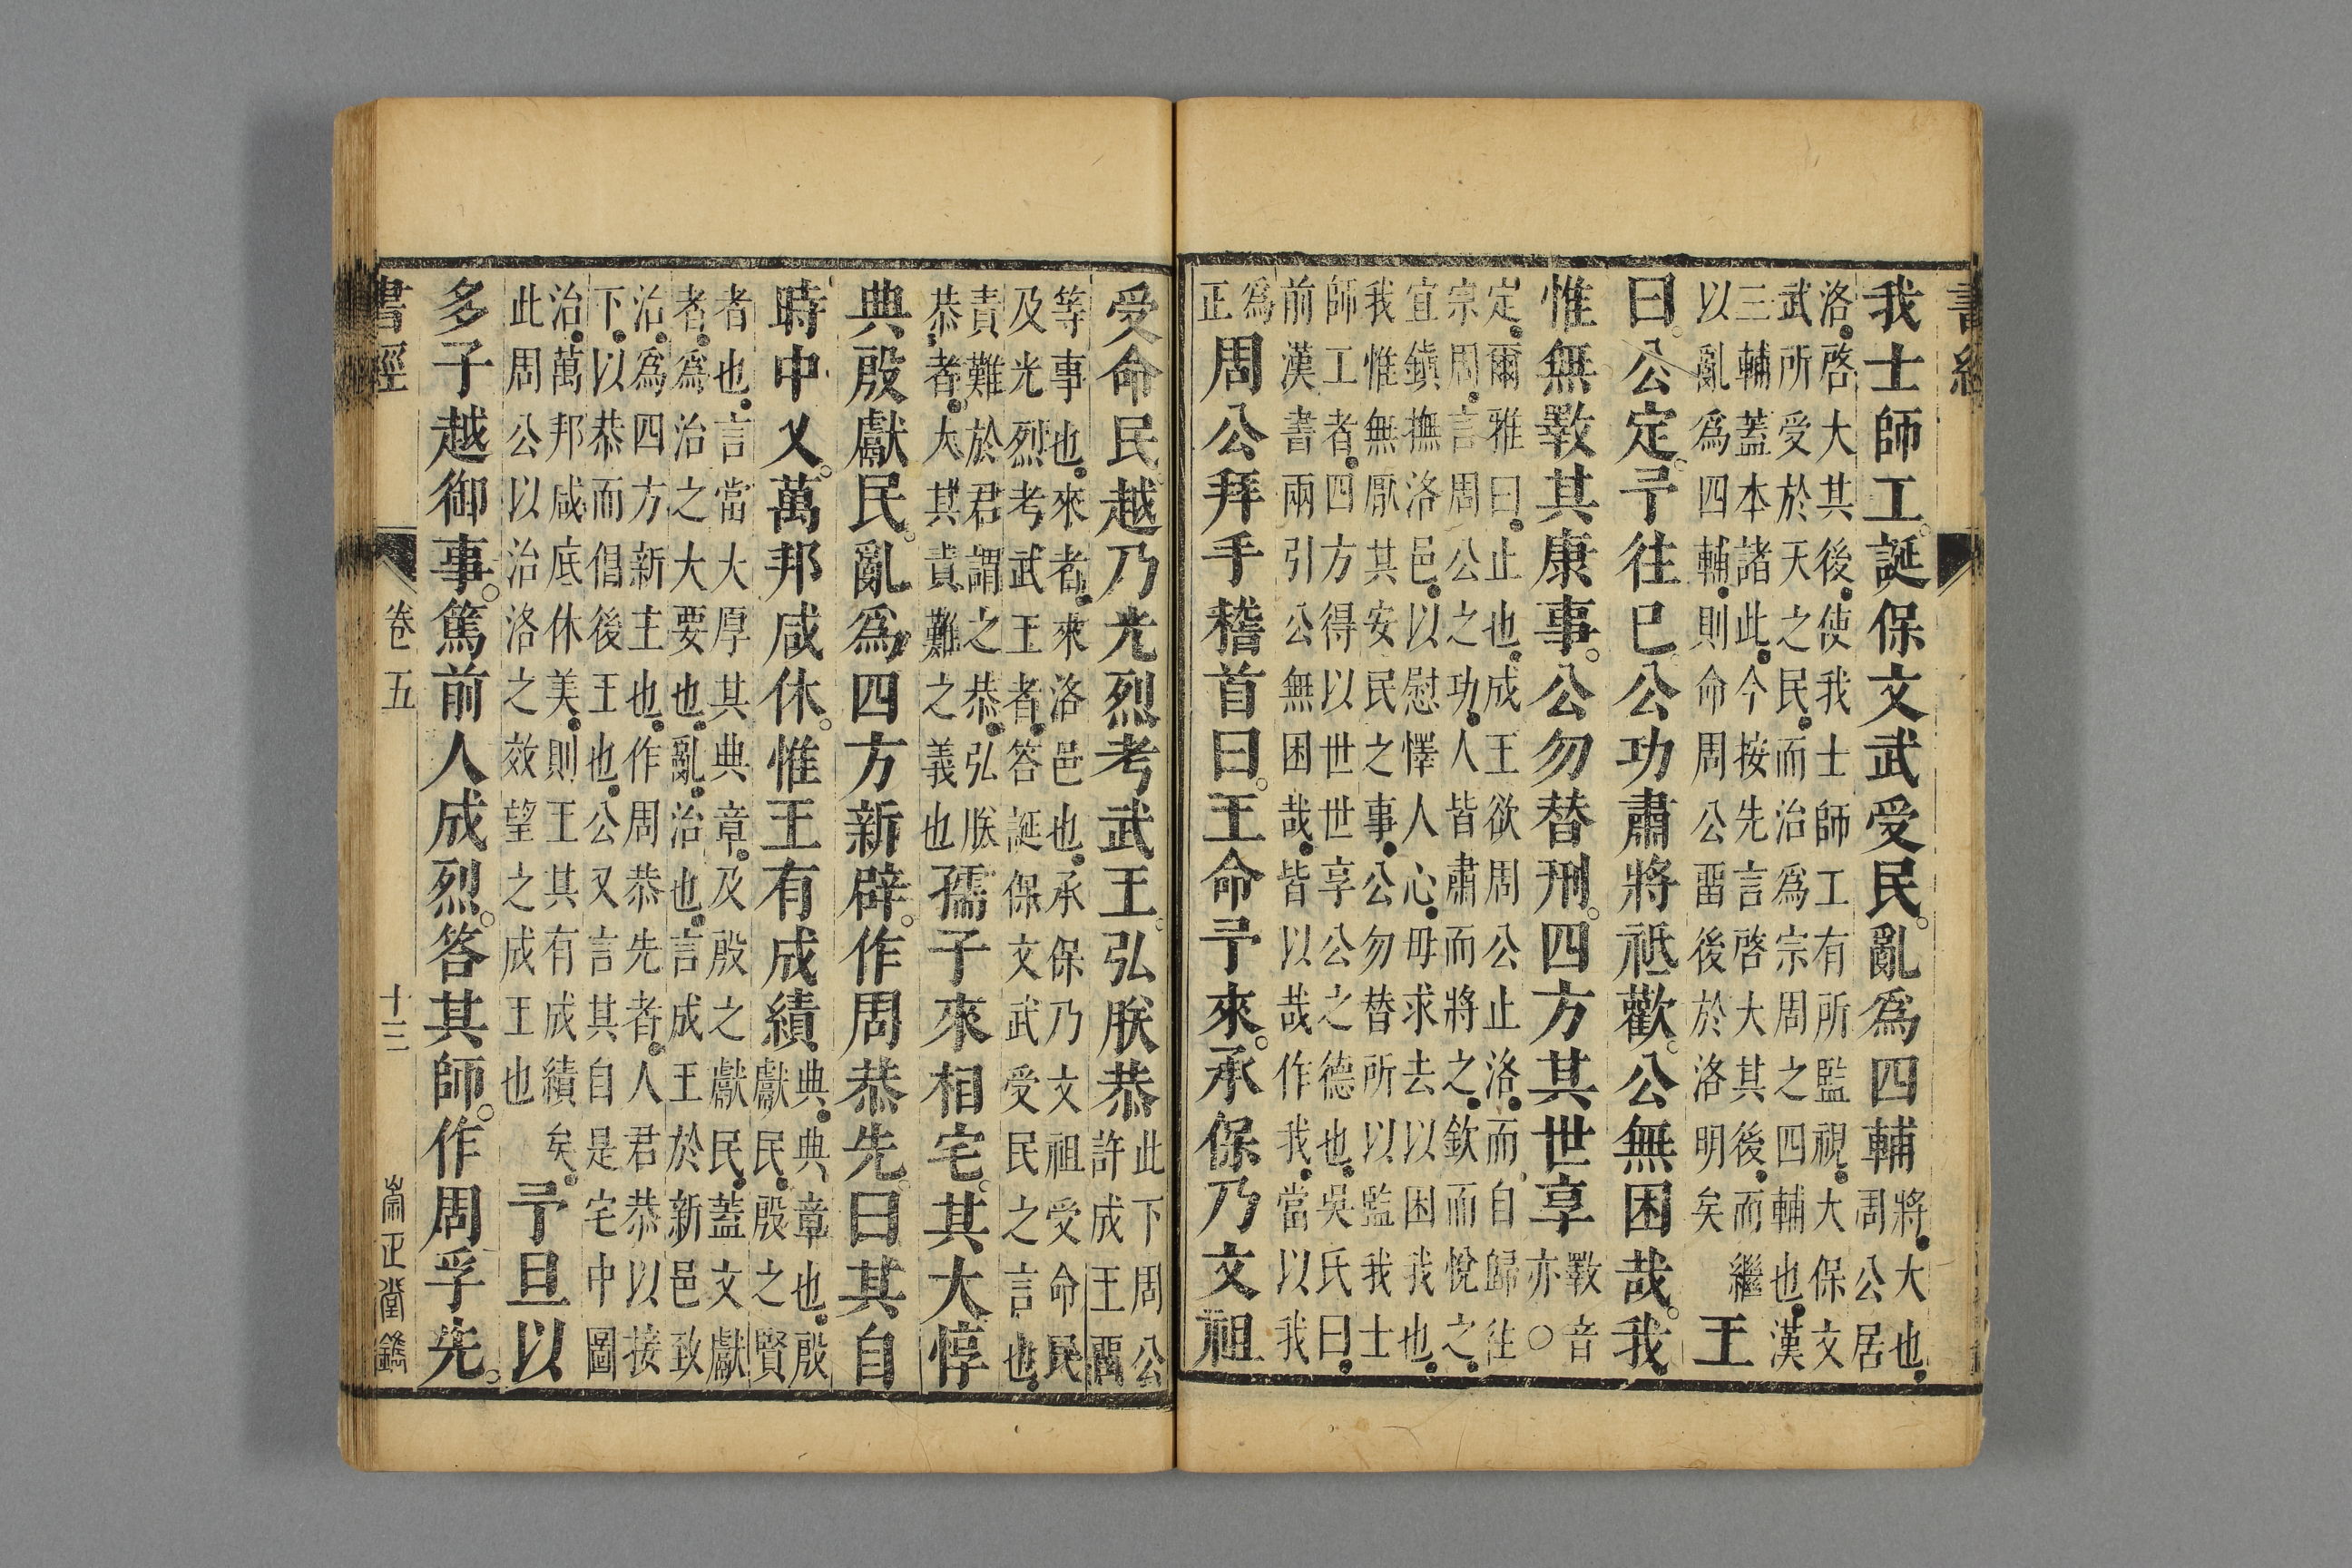 書經
我士師工。誕保文武受民。亂爲四輔
將大也
周公居
洛啓大其後使我士師工有所監視大保文
武所受於天之民而治爲宗周之四輔也漢
三輔蓋本諸此今按先言啓大其後而繼
以亂爲四輔則命周公畱後於洛明矣
王
曰。公定。予往已。公功肅將祗歡。公無困哉。我
惟無斁其康事。公勿替刑。四方其世享
斁音
亦○
定爾雅曰止也成王欲周公止洛而自歸往
宗周言周公之功人皆肅而將之欽而悅之
宜鎮撫洛邑以慰懌人心毋求去以困我也
我惟無厭其安民之事公勿替所以監我士
師工者四方得以世世享公之德也吳氏曰
前漢書兩引公無困哉皆以哉作我當以我
爲
正
周公拜手稽首曰。王命予來。承保乃文祖
受命民。越乃光烈考武王。弘朕恭
此下周公
許成王畱
等事也來者來洛邑也承保乃文祖受命民
及光烈考武王者答誕保文武受民之言也
責難於君謂之恭弘朕
恭者大其責難之義也
孺子來相宅。其大惇
典殷獻民。亂爲四方新辟。作周恭先。曰其自
時中乂。萬邦咸休。惟王有成績
典典章也殷
獻民殷之賢
者也言當大厚其典章及殷之獻民蓋文獻
者爲治之大要也亂治也言成王於新邑致
治爲四方新主也作周恭先者人君恭以接
下以恭而倡後王也公又言其自是宅中圖
治萬邦咸底休美則王其有成績矣
此周公以治洛之效望之成王也
予旦以
多子越御事。篤前人成烈。答其師。作周孚先。
書經 卷五 十三 崇正堂鐫